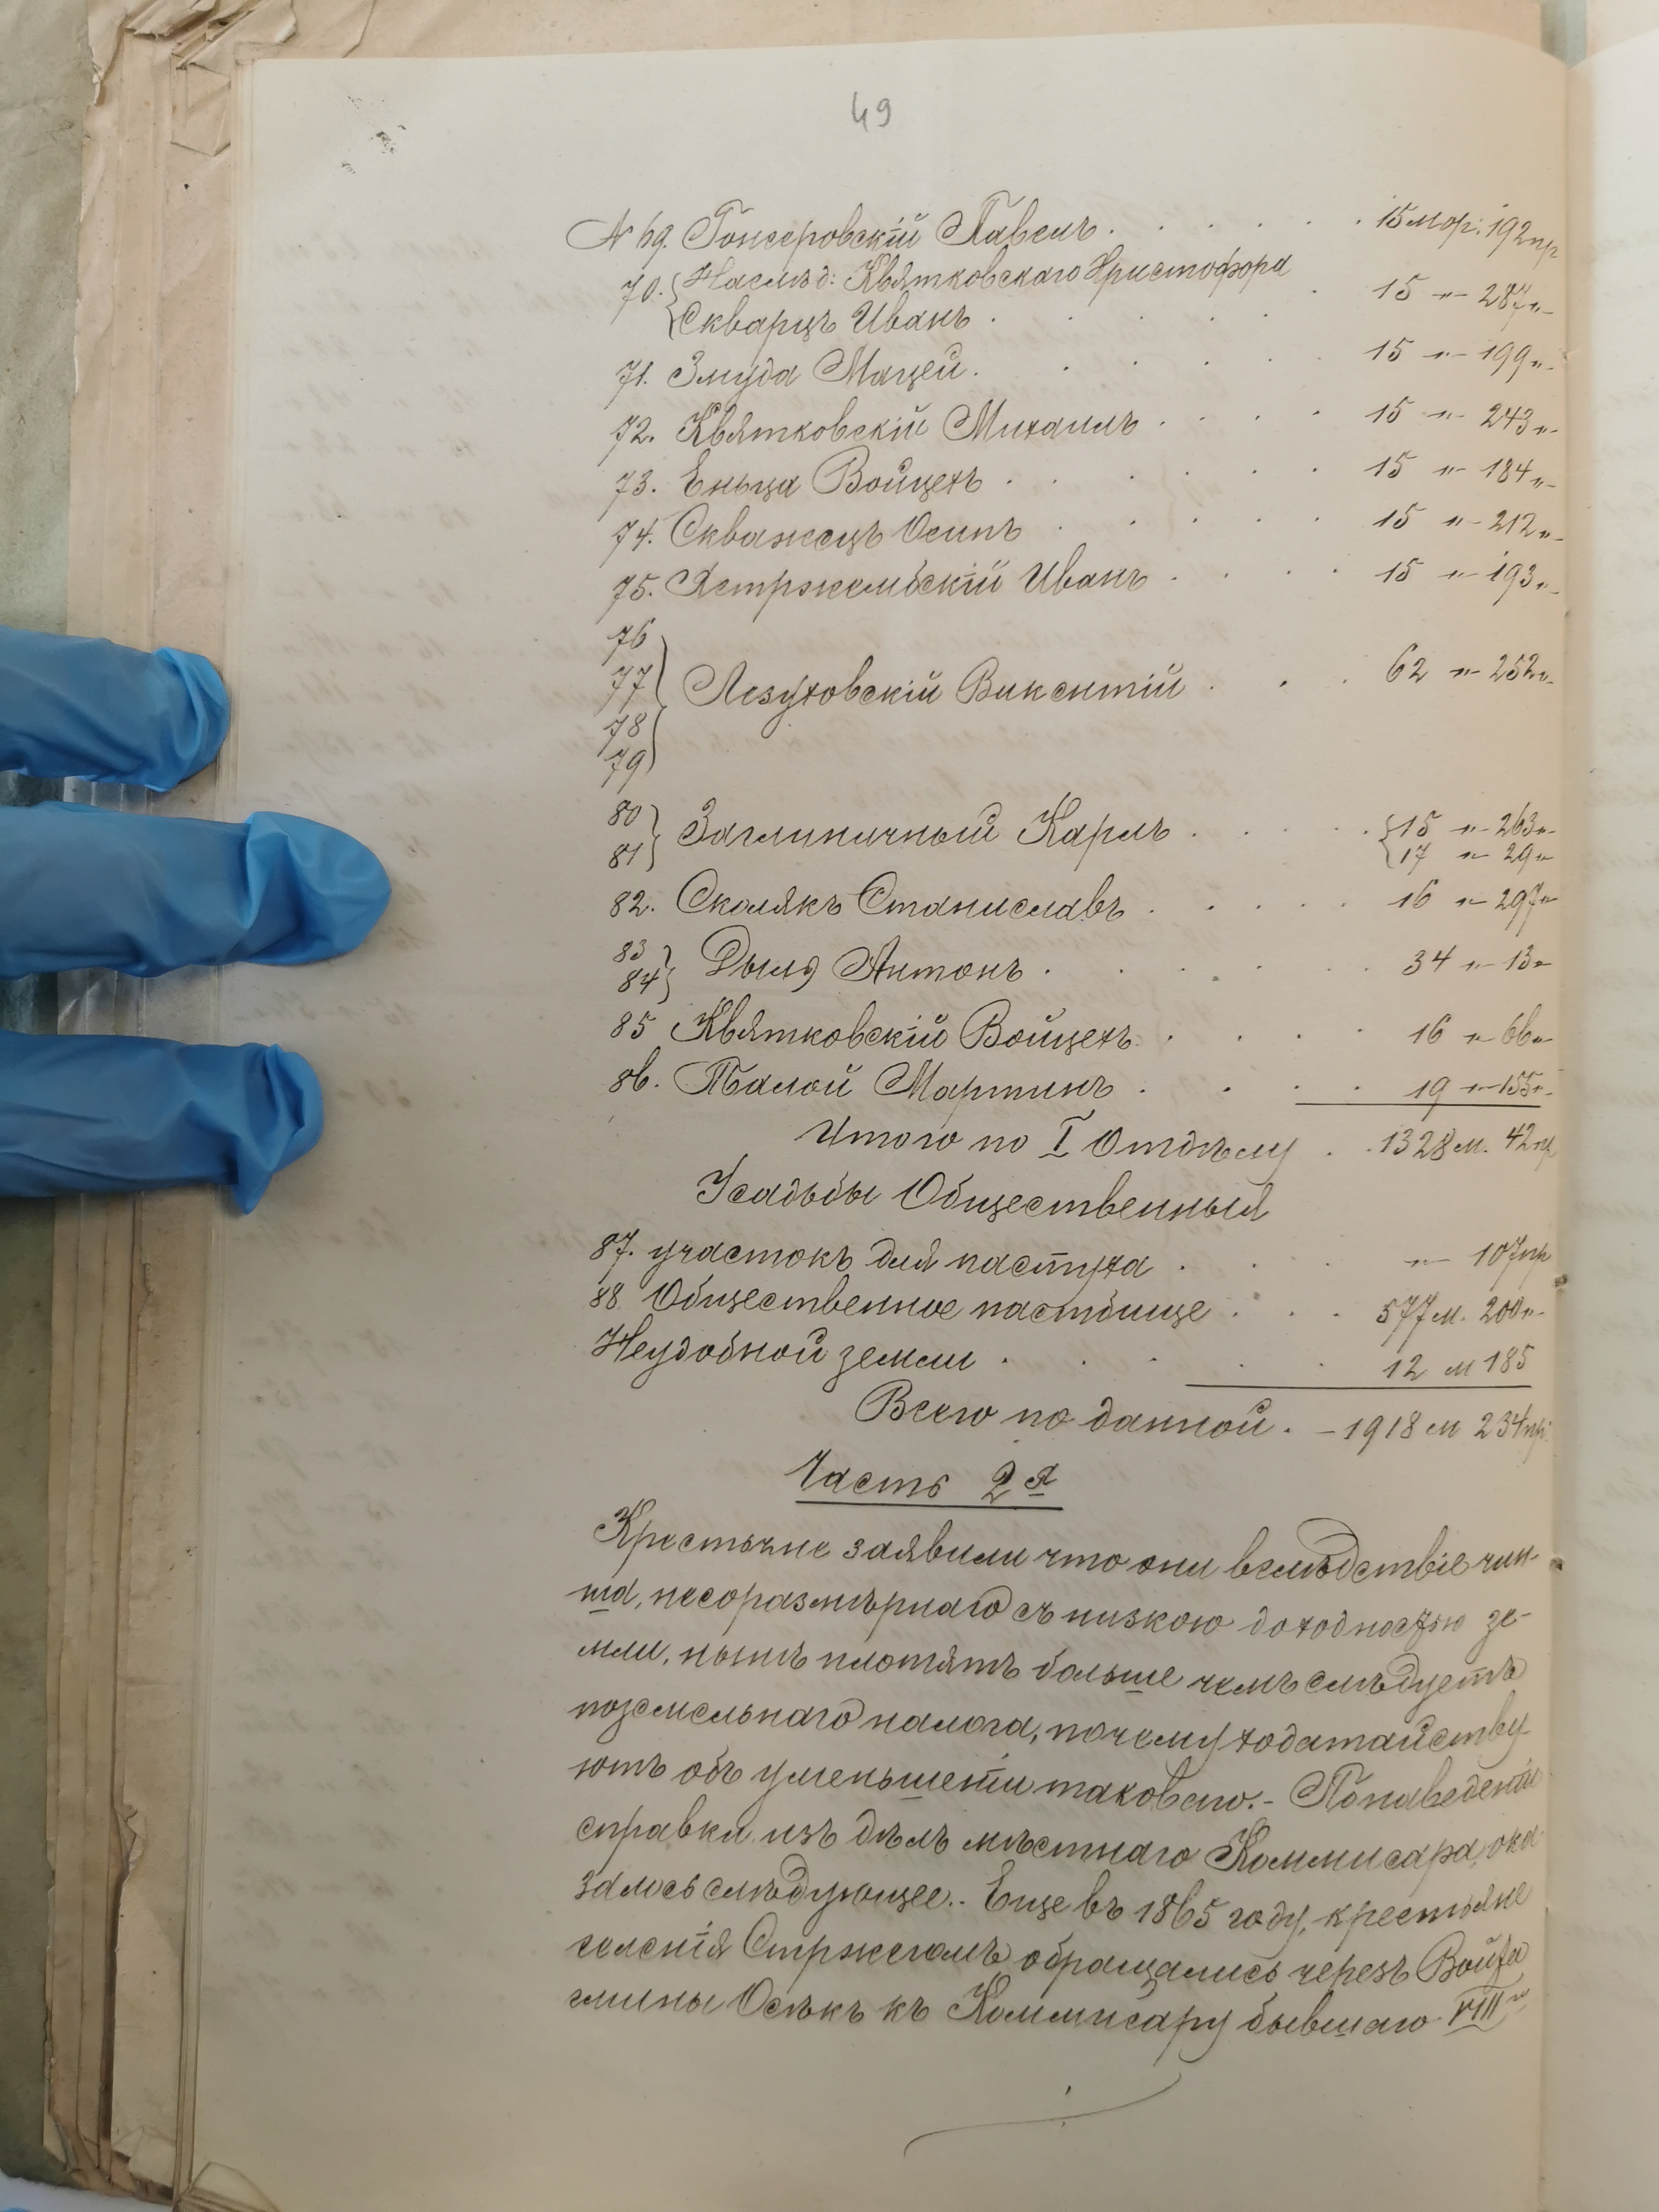 49
№ 69. Гонсеровскій Павелъ . . . . . . 15 мор: 192 пр
70. { Наслѣд: Квятковскаго Христофора
{ Скварцъ Иванъ . . . . . 15 „ 287 „
71. Змуда Мацей . . . . . 15 „ 199 „
72. Квятковскій Михаилъ . . . . 15 „ 243 „
73. Еньца Войцехъ . . . . . 15 „ 184 „
74. Скважецъ Осипъ . . . . . 15 „ 212 „
75. Ястржембскій Иванъ . . . . 15 „ 193 „
76
77 } Лезуховскій Викентій . . . 62 „ 252 „
78
79
80 } Заглиничный Карлъ . . . . { 15 „ 263 „
81 } { 17 „ 29 „
82. Сколякъ Станиславъ . . . . . 16 „ 297 „
83 } Дыля Антонъ . . . . . 34 „ 13 „
84 }
85 Квятковскій Войцехъ . . . . 16 „ 66 „
86. Пталой Мартинъ . . . . 19 „ 155 „
Итого по I Отдѣлу . . 1328 м. 42 пр
Усадьбы Общественныя
87. участокъ для пастуха . . . . „ 107 пр
88 Общественное пастбище . . . . 577 м. 200 „
Неудобной земли . . . . . 12 м 185
Всего по данной . – 1918 м 234 пр.
Часть 2я
Крестьяне заявили что они вслѣдствіе чин-
ша, несоразмѣрнаго съ низкою доходностью зе-
мли, нынѣ платятъ больше чемъ слѣдуетъ
поземельнаго налога, почему ходатайству-
ютъ объ уменьшеніи таковаго. – По наведеніи
справки изъ дѣлъ мѣстнаго Коммисара, ока-
залось слѣдующее. – Еще въ 1865 году, крестьяне
селенія Стржегомъ обращались черезъ Войта
гмины Осѣкъ къ Коммисару бывшаго VIII го